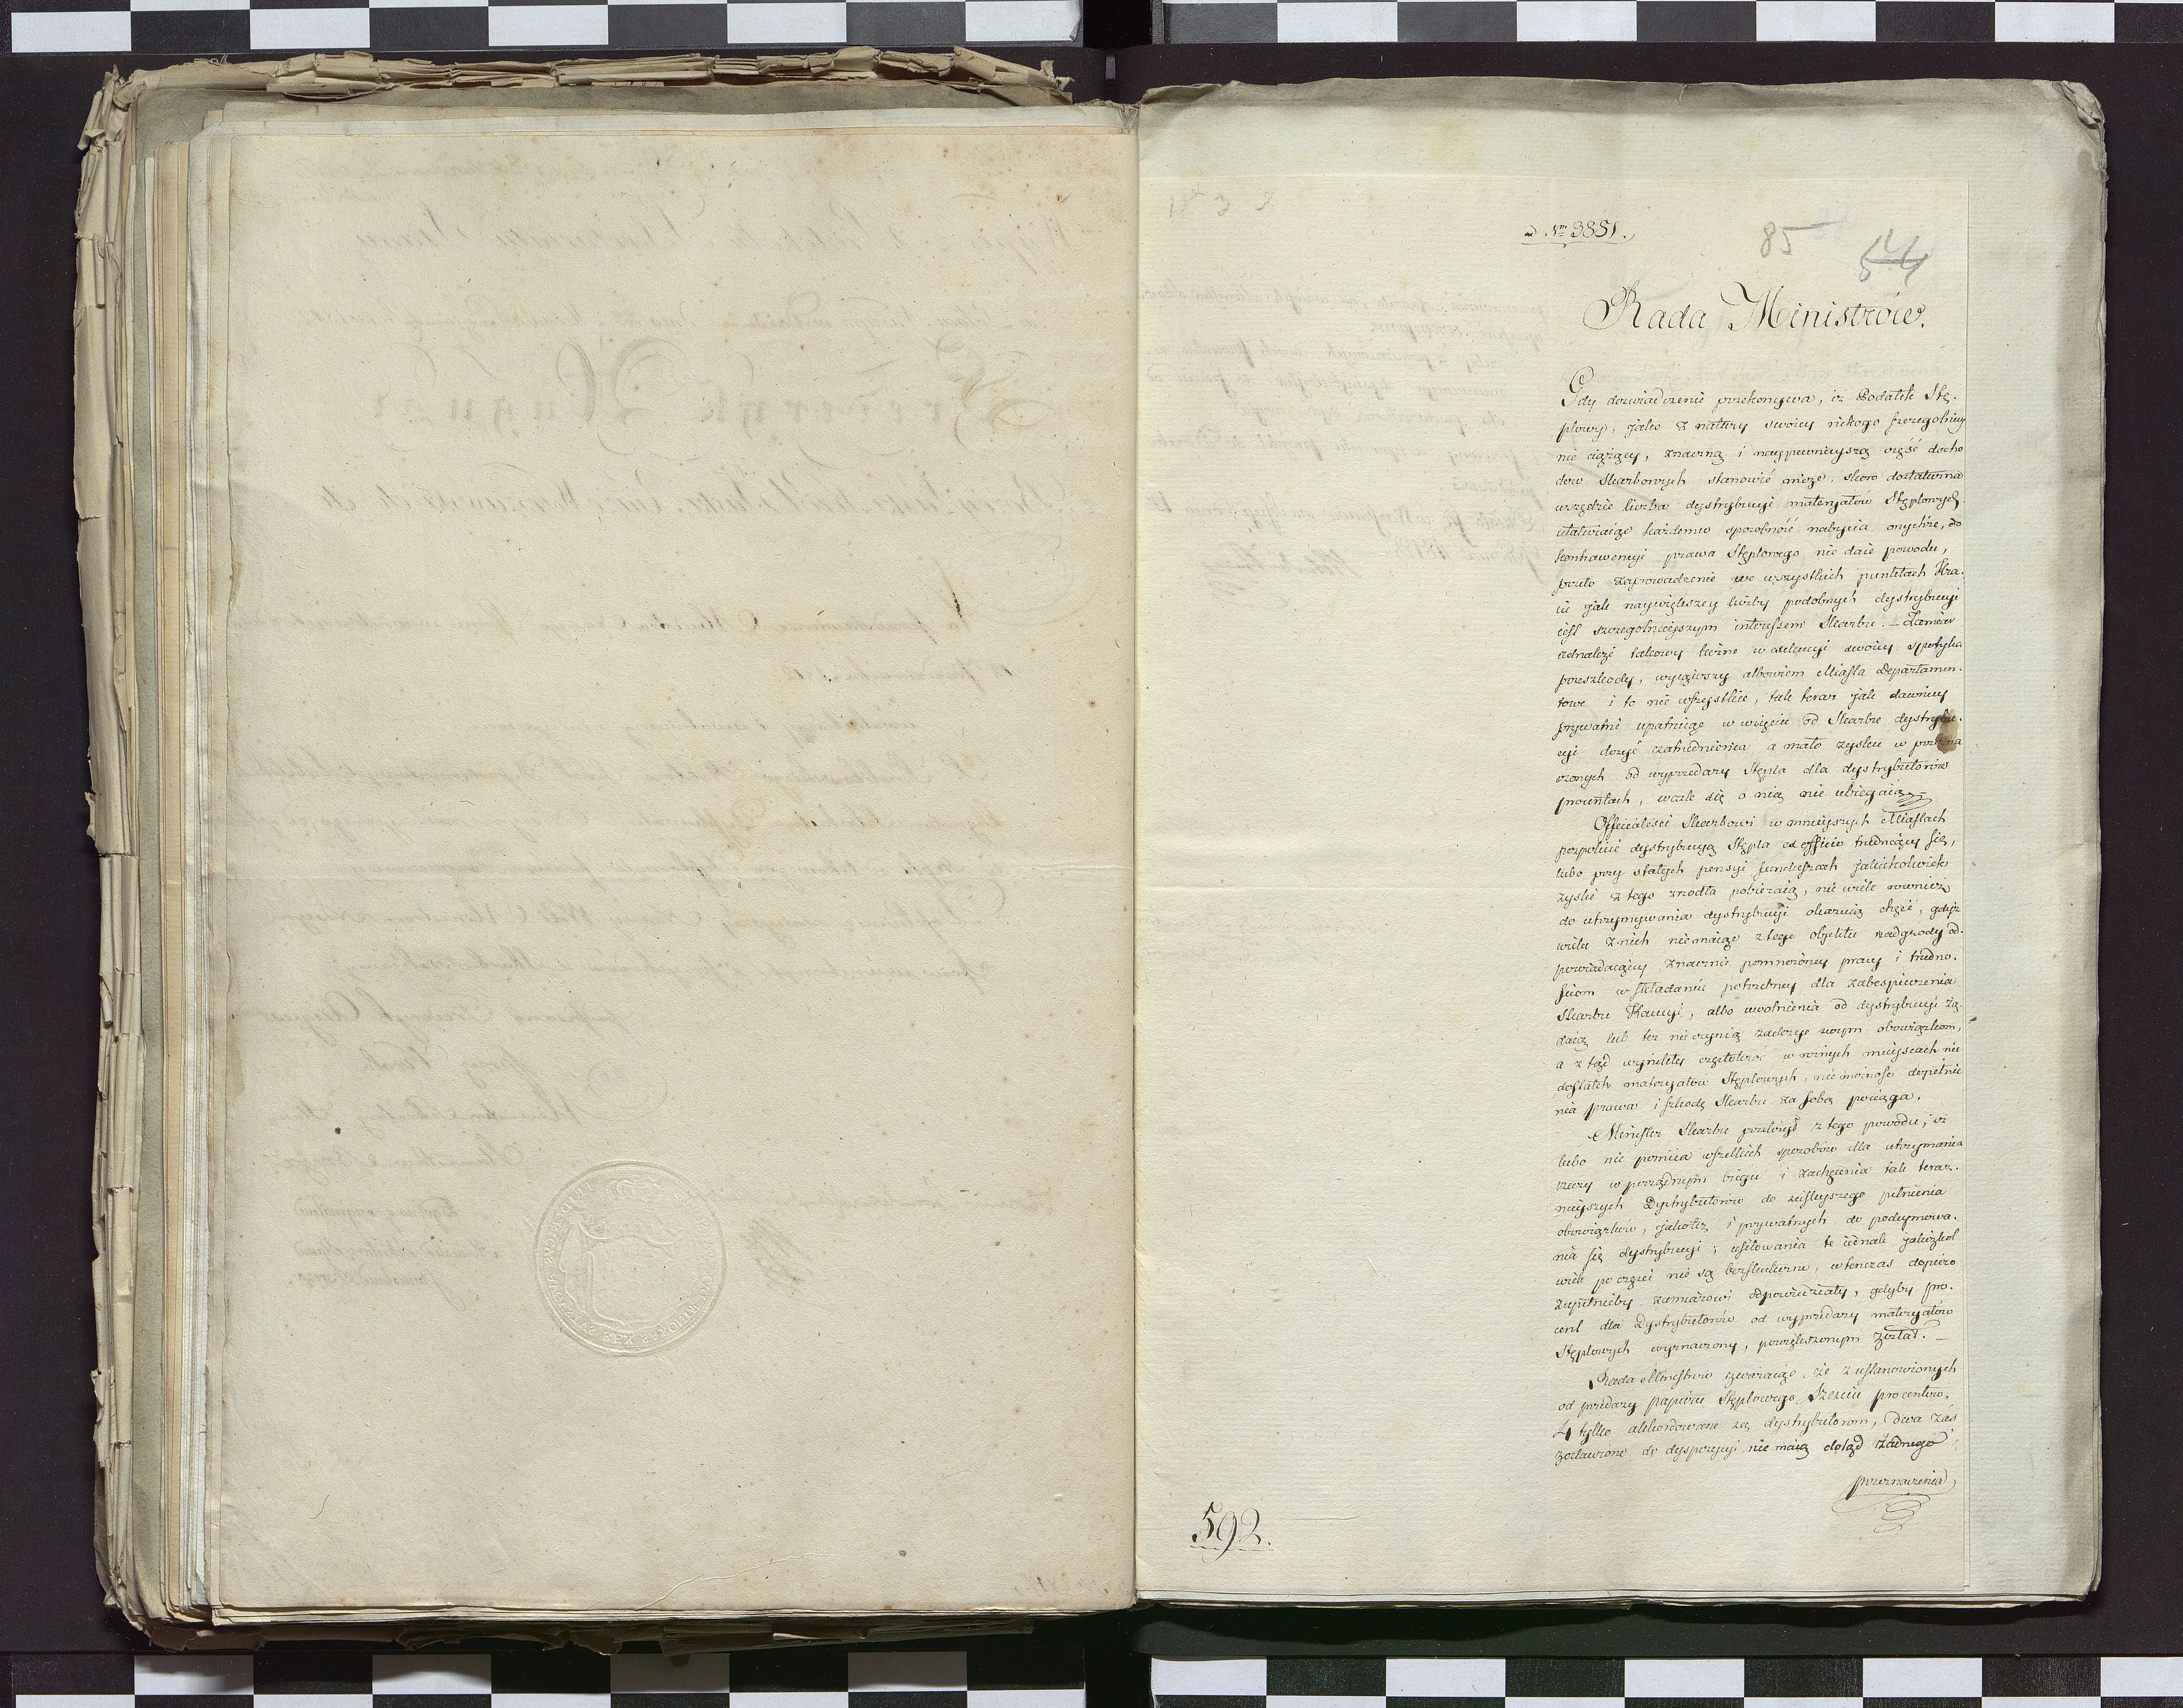 ad Nrm 3851.
85 54
Rada Ministrów.
Gdy doswiadczenie przekonywa, iż Podatek Stę-
plowy, jako z natury swoiey nikogo szczegolniey
nie ciążący, znaczną i naypewnieyszą część docho
dow Skarbowych stanowić może, skoro dostateczna
wszędzie liczba dystrybucyi materyałow Stęplowych
ułatwiaiąc każdemu sposobność nabycia onychże, do
kontrawencyi prawa Stęplowego nie daie powodu,
przeto zaprowadzenie we wszystkich punktach Kra-
iu jak naywiększey liczby podobnych dystrybucyi
iest szczegolnieyszym interessem Skarbu. – Zamiar
iednakże takowy liczne w exekucyi swoiey spotyka
przeszkody, wyiąwszy albowiem Miasta Departamen-
towe i to nie wszystkie, tak teraz jak dawniey
prywatni upatruiąc w wzięciu od Skarbu dystrybu-
cyi dosyć zatrudnienia a mało zysku w przezna
czonych od wyprzedarzy Stępla dla dystrybutorów
procentach, wcale się o nią nie ubiegaią.
Officialisci Skarbowi w mnieyszych Miastach
pospolicie dystrybucyą Stępla ex officio trudniący się,
lubo przy stałych pensyi funduszach jakiekolwiek
zyski z tego zrodła pobieraią, nie wiele rownież
do utrzymywania dystrybucyi okazuią chęci, gdyż
wielu z nich niemaiąc z tego objektu nadgrody od-
powiadaiącey znacznie pomnożoney pracy i trudno-
sciom w składaniu potrzebney dla zabespieczenia
Skarbu Kaucyi, albo uwolnienia od dystrybucyi żą-
daią lub też nie czynią zadosyć swym obowiązkom,
a ztąd wynikły częstokroć w roznych mieyscach nie
dostatek materyałow Stęplowych, niemożność dopełnie
nia prawa i szkodę Skarbu za sobą pociąga.
Minister Skarbu przeświadczony z tego powodu, iż
lubo nie pomiia wszelkich sposobow dla utrzymania
rzeczy w porządnym biegu i zachęcenia tak teraz-
nieyszych Dystrybutorow do ścisleyszego pełnienia
obowiązków, jakoteż i prywatnych do podeymowa-
nia się dystrybucyi; usiłowania te iednak jakożkol
wiek po części nie są bezskuteczne, wtenczas dopiero
zupełnieby zamiarowi odpowiedziały, gdyby pro-
cent dla Dystrybutorow od wyprzedarzy materyałow
Stęplowych wyznaczony, powiększonym został. –
Rada Ministrow zważaiąc, że z ustanowionych
od przedarzy papieru Stęplowego Sześciu procentow,
4 tylko akkordowane są dystrybutorom, dwa zaś
zostawione do dyspozycyi nie maią dotąd żadnego
przeznaczenia
592.